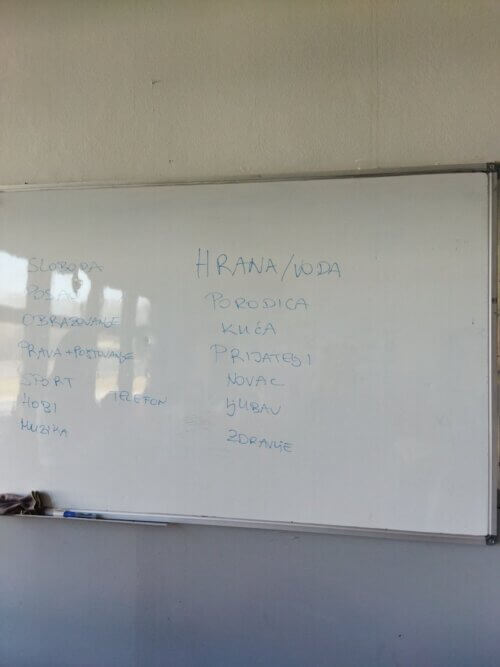 SLOBODA
POSAO
OBRAZOVANJE
PRAVA + POŠTOVANJE
SPORT
TELEFON
HOBI
MUZIKA
HRANA/VODA
PORODICA
KUĆA
PRIJATELJI
NOVAC
LJUBAV
ZDRAVLJE